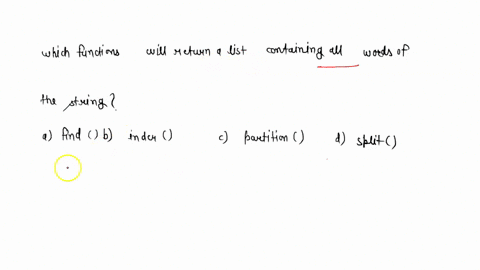 which functions will return a list containing all words of
the string?
a) find () b) index () c) partition () d) split ()